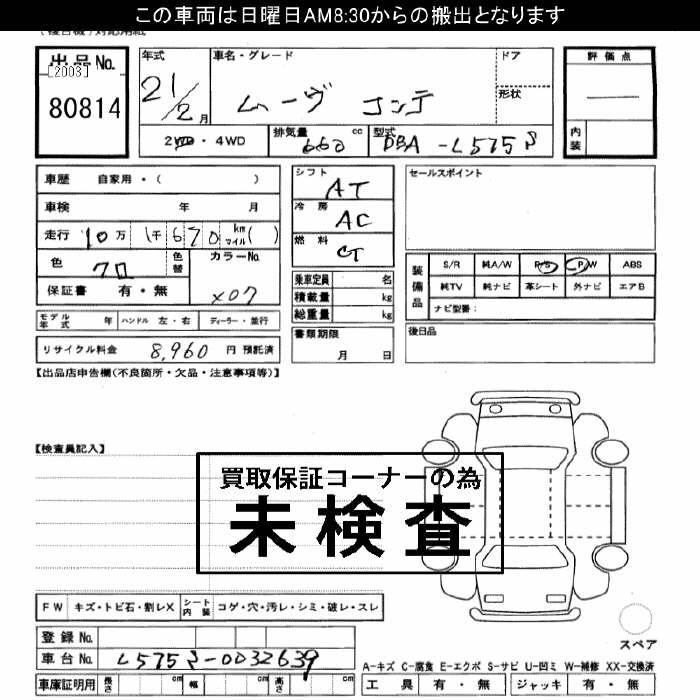 この車両は日曜日AM8:30からの搬出となります
(複合機)対応用紙
出品No.
[2003]
80814
年式
21/2月
車名・グレード
ムーヴ コンテ
ドア
形状
評価点
内装
2WD・4WD
排気量 660 cc
型式 DBA-L575S
車歴 自家用・( )
車検 年 月
走行 10万 1千670 km マイル( )
色 クロ
色替
カラーNo. X07
保証書 有・無
シフト AT
冷房 AC
燃料
乗車定員 名
積載量 kg
総重量 kg
セールスポイント
装備品
S/R 純A/W P/S P/W ABS
純TV 純ナビ 革シート 外ナビ エアB
ナビ型番:
モデル年式 年 ハンドル 左・右 ディーラー・並行
リサイクル料金 8,960 円 預託済
書類期限
月 日
後日品
【出品店申告欄(不良箇所・欠品・注意事項等)】
【検査員記入】
買取保証コーナーの為
未検査
FW キズ・トビ石・割レX シート内装 コゲ・穴・汚レ・シミ・破レ・スレ
登録No.
車台No. L575S-0032639
車庫証明用 長さ cm 幅 cm 高さ cm
スペア
A-キズ C-腐食 E-エクボ S-サビ U-凹ミ W-補修 XX-交換済
工具 有・無 ジャッキ 有・無